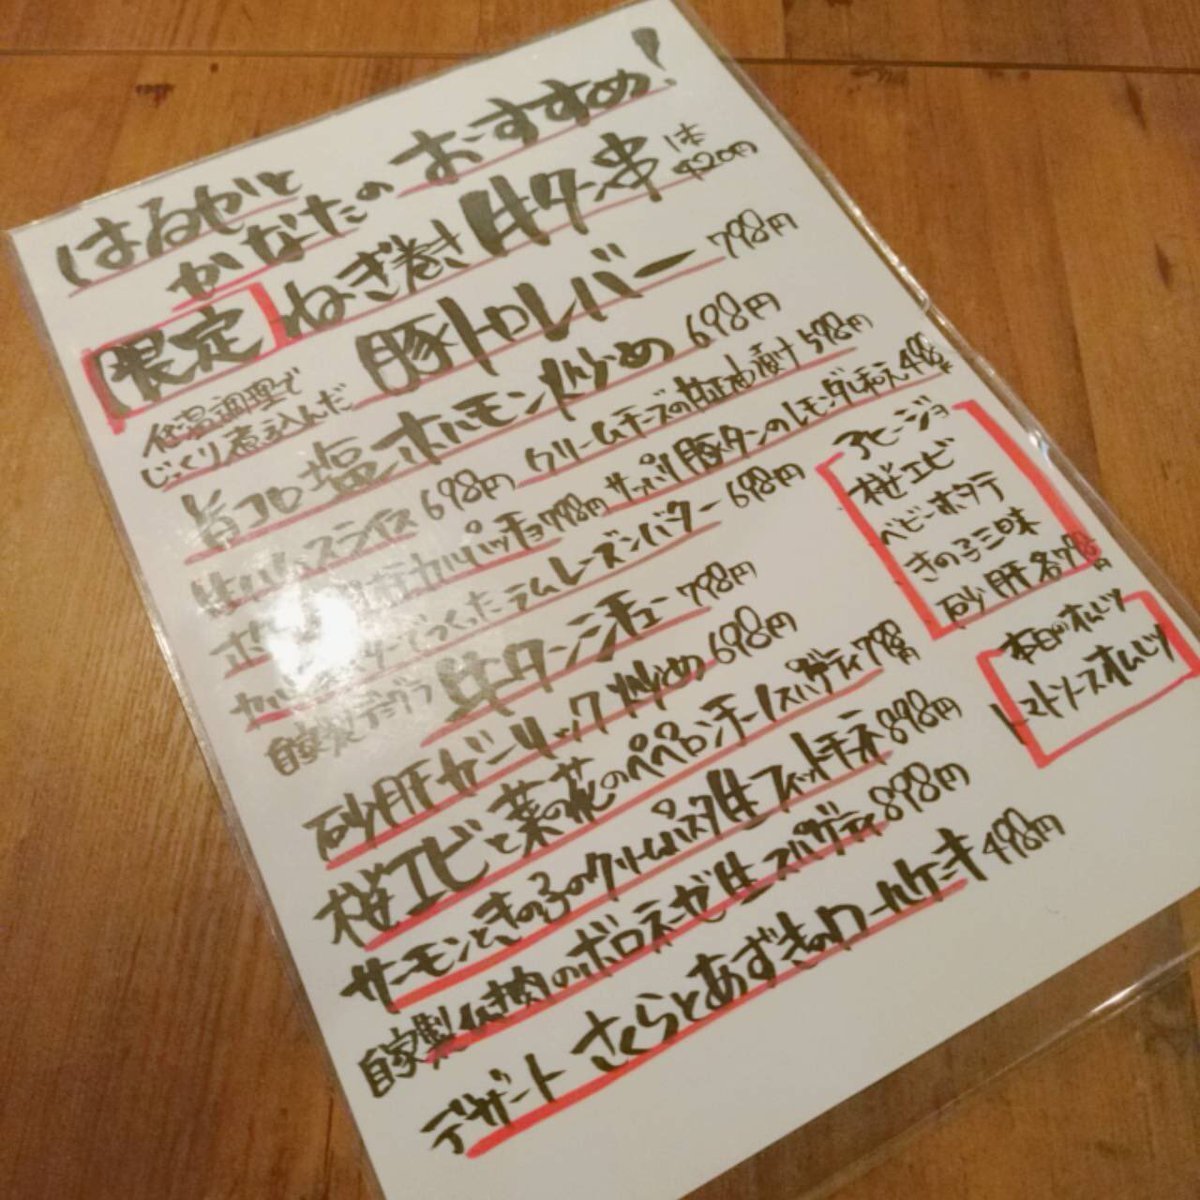 はるかと
かなたの おすすめ!
限定 ねぎ巻き牛タン串 1本420円
低温調理で
じっくり煮込んだ 豚トロレバー 798円
旨コロ塩ホルモン炒め 698円
生ハムスライス 698円 クリームチーズの甘正油漬け 598円
カルパッチョ798円 サッパリ豚タンのレモンダレ和え 498円
でつくったラムレーズンバター 698円
自家製デミグラ 牛タンシチュー 798円
砂肝ガーリック炒め 698円
桜エビと菜の花のペペロンチーノスパゲティ798円
サーモンときの子のクリームパスタ生フィットチネ 898円
自家製 肉のボロネーゼ生スパゲティ 898円
デザート さくらとあずきのロールケーキ 498円
アヒージョ
桜エビ
ベビーホタテ
きの子三味
砂肝 各798円
本日のオムレツ
トマトソースオムレツ